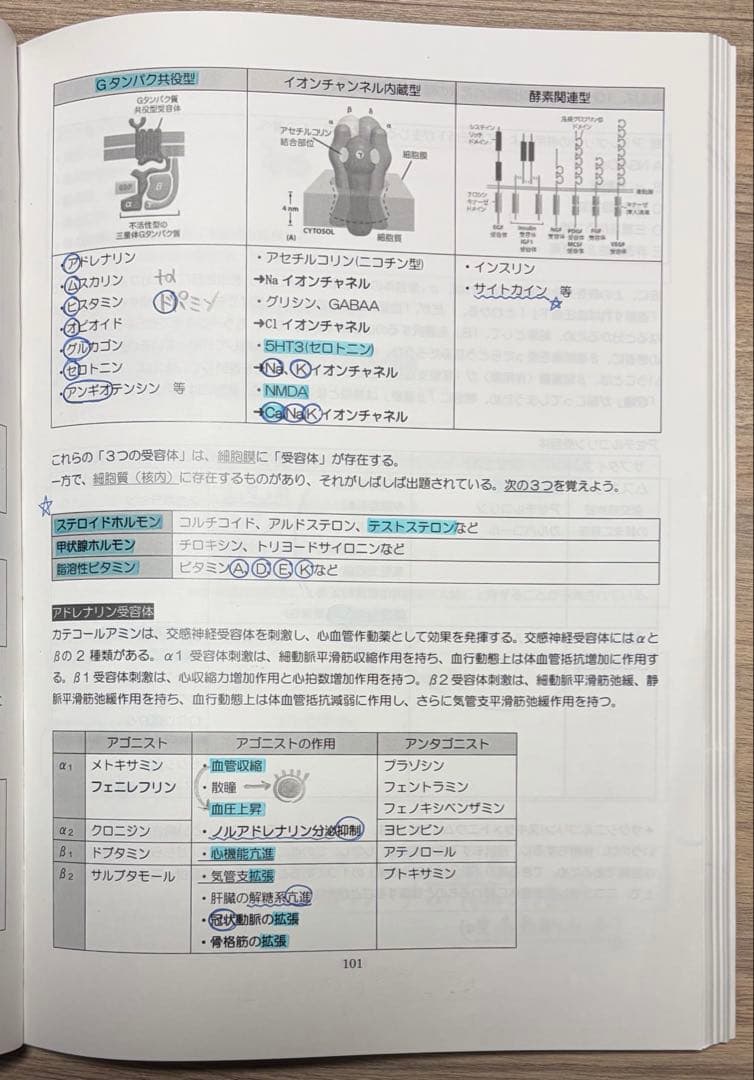 Gタンパク共役型
イオンチャンネル内蔵型
酵素関連型
Gタンパク質
共役型受容体
GDP
α
β
γ
不活性型の
三量体Gタンパク質
β
δ
α
α
γ
アセチルコリン
結合部位
細胞膜
4 nm
(A)
CYTOSOL
細胞質
システイン
リッチ
ドメイン
免疫グロブリン様
ドメイン
細胞膜
チロシン
キナーゼ
ドメイン
キナーゼ
挿入領域
EGF
受容体
insulin
受容体
IGF1
受容体
NGF
受容体
PDGF
受容体
MCSF
受容体
FGF
受容体
VEGF
受容体
・アドレナリン
・ムスカリン
・ヒスタミン
・オピオイド
・グルカゴン
・セロトニン
・アンギオテンシン 等
ドパミン
・アセチルコリン(ニコチン型)
→Na イオンチャネル
・グリシン、GABAA
→Cl イオンチャネル
・5HT3(セロトニン)
→Na、K イオンチャネル
・NMDA
→Ca Na K イオンチャネル
・インスリン
・サイトカイン 等
☆
これらの「3つの受容体」は、細胞膜に「受容体」が存在する。
一方で、細胞質（核内）に存在するものがあり、それがしばしば出題されている。次の3つを覚えよう。
☆
ステロイドホルモン コルチコイド、アルドステロン、テストステロンなど
甲状腺ホルモン チロキシン、トリヨードサイロニンなど
脂溶性ビタミン ビタミンA、D、E、Kなど
アドレナリン受容体
カテコールアミンは、交感神経受容体を刺激し、心血管作動薬として効果を発揮する。交感神経受容体にはαと
βの2種類がある。α1 受容体刺激は、細動脈平滑筋収縮作用を持ち、血行動態上は体血管抵抗増加に作用す
る。β1受容体刺激は、心収縮力増加作用と心拍数増加作用を持つ。β2受容体刺激は、細動脈平滑筋弛緩、静
脈平滑筋弛緩作用を持ち、血行動態上は体血管抵抗減弱に作用し、さらに気管支平滑筋弛緩作用を持つ。
アゴニスト アゴニストの作用 アンタゴニスト
α1 メトキサミン ・血管収縮 プラゾシン
フェニレフリン ・散瞳→ フェントラミン
・血圧上昇 フェノキシベンザミン
α2 クロニジン ・ノルアドレナリン分泌抑制 ヨヒンビン
β1 ドブタミン ・心機能亢進 アテノロール
β2 サルブタモール ・気管支拡張 ブトキサミン
・肝臓の解糖系亢進
・冠状動脈の拡張
・骨格筋の拡張
101